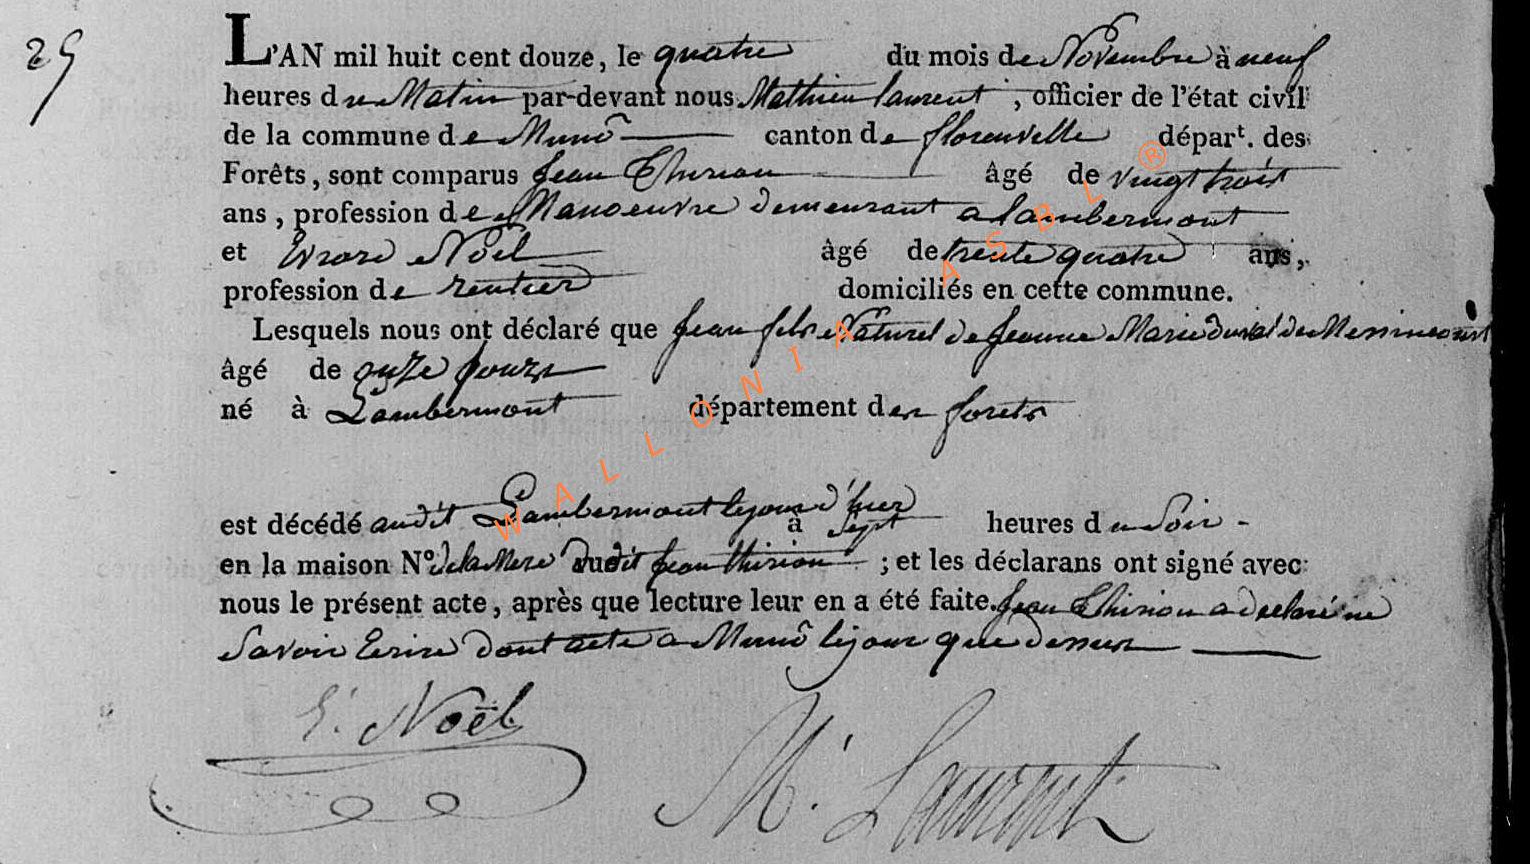 29
L'AN mil huit cent douze, le quatre du mois de Novembre à neuf
heures du Matin par-devant nous Mathieu laurent, officier de l'état civil
de la commune de Muno canton de florenville départ. des
Forêts, sont comparus Jean Thirion âgé de vingt trois
ans, profession de Manoeuvre demeurant a lambermont
et Evrard Noël âgé de trente quatre ans,
profession de rentier domiciliés en cette commune.
Lesquels nous ont déclaré que Jean fils Naturel de Jeanne Marie duval de Messincourt
âgé de onze jours
né à Lambermont département des forets
est décédé audit Lambermont le jour d'hier à Sept heures du Soir -
en la maison N° de la Mere dudit Jean thirion ; et les déclarans ont signé avec
nous le présent acte, après que lecture leur en a été faite. Jean Thirion a declaré ne
Savoir Ecrire dont acte a Muno le jour que dessus
E. Noël
M. Laurent
WALLONIA ASBL ®